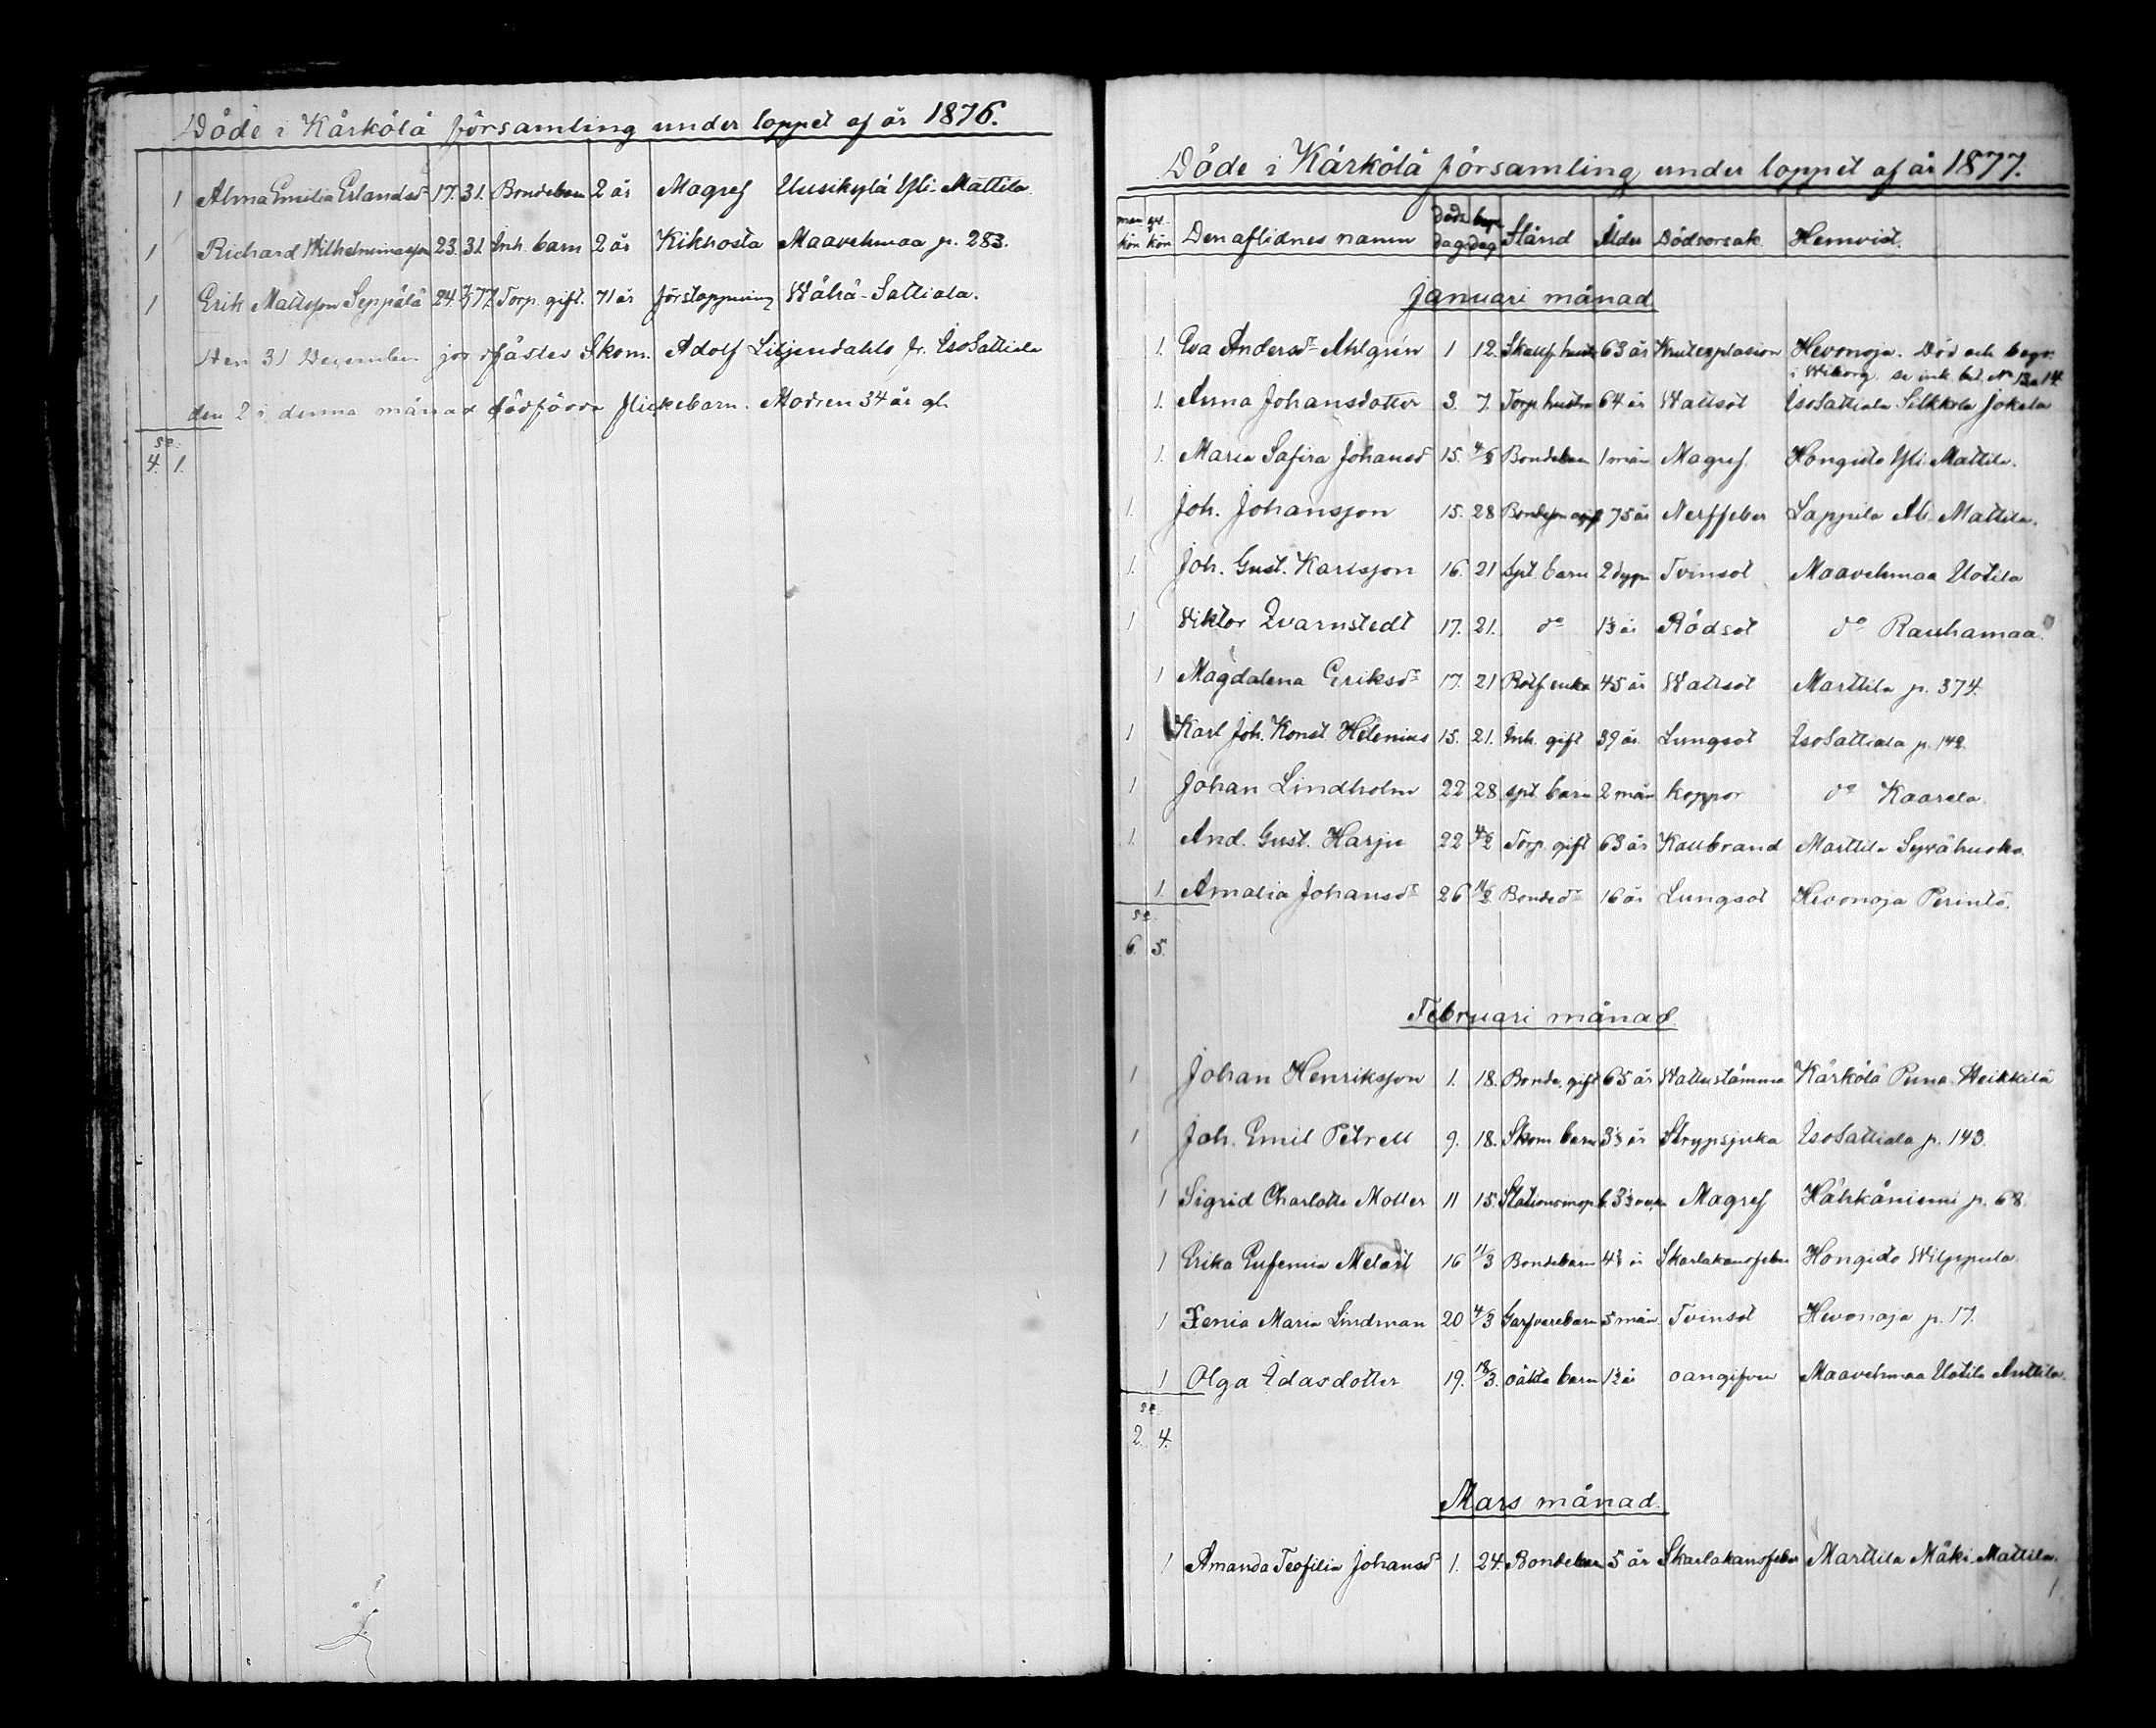 Döde i Kärkölä församling under loppet af år 1876.
1 Alma Emilia Erlandsdr 17. 31. Bondebarn 2 år Magref Uusikylä Yli-Mattila.
1 Richard Wilhelminasson 23. 31. Inh. barn 2 år Kikhosta Maavehmaa p. 283.
1 Erik Mattsson Seppälä 24. 7/1 77. Torp. gift. 71 år förstoppning Wähä-Sattiala.
Den 31 December jordfästes Skom. Adolf Liljendahls fr. IsoSattiala
den 2 i denna månad dödfödda flickebarn. Modren 34 år gl.
Sa.
4. 1.
Döde i Kärkölä församling under loppet af år 1877.
man kön qv. kön Den aflidnes namn döds dag begr. dag Stånd Ålder Dödsorsak Hemvist.
Januari månad
1. Eva Andersdr Ahlgrén 1 12. Skallf. hustru 63 år Krutexplosion Hevonoja. Död och begr.
i Wiborg. se ink. bet. No 13 a 14.
1. Anna Johansdotter 3. 7. Torp. hustru 64 år Wattsot IsoSattiala Silkkola Jokela
1. Maria Safira Johansdr 15. 4/2 Bondebarn 1 mån Magref Hongisto Yli-Mattila.
1. Joh. Johansson 15. 28 Bondeson ogift 75 år Nerffeber Lappila Ali-Mattila.
1. Joh. Gust. Karlsson 16. 21 Spt. barn 2 dygn Tvinsot Maavehmaa Uotila
1 Wiktor Qvarnstedt 17. 21. do 1 1/3 år Rödsot do Rauhamaa.
1 Magdalena Eriksdr 17. 21 Rotf. enka 45 år Wattsot Marttila p. 374.
1 Karl Joh. Konst. Helenius 15. 21. Inh. gift 39 år Lungsot IsoSattiala p. 142.
1 Johan Lindholm 22 28 spt. barn 2 mån koppor do Kaarela
1. And. Gust. Harju 22 4/2 Torp. gift 63 år Kallbrand Marttila Syvähuoko.
1. Amalia Johansdr 26 11/2 Bondedr 16 år Lungsot Hevonoja Perintö.
Sa.
6. 5.
Februari månad.
1 Johan Henriksson 1. 18. Bonde, gift 65 år Wattustämma Kärkölä Puna Heikkilä
1 Joh. Emil Petrell 9. 18. Skom. barn 3 1/3 år Strypsjuka IsoSattiala p. 143.
1 Sigrid Charlotta Moller 11 15. Stationsinsp. b. 3 1/3 Magref Hähkäniemi p. 68.
1 Erika Eufemia Melart 16 11/3 Bondebarn 4 1/2 år Skarlakansfeber Hongisto Wilppula.
1 Xenia Maria Lindman 20 4/3 Garfvarebarn 5 mån Tvinsot Hevonoja p. 17.
1 Olga Idasdotter 19. 18/3. oäkta barn 1 1/2 år oangifven Maavehmaa Uotila Anttila.
Sa.
2. 4.
Mars månad.
1 Amanda Teofilia Johansdr 1. 24. Bondebarn 5 år Skarlakansfeber Marttila Mäki-Mattila.